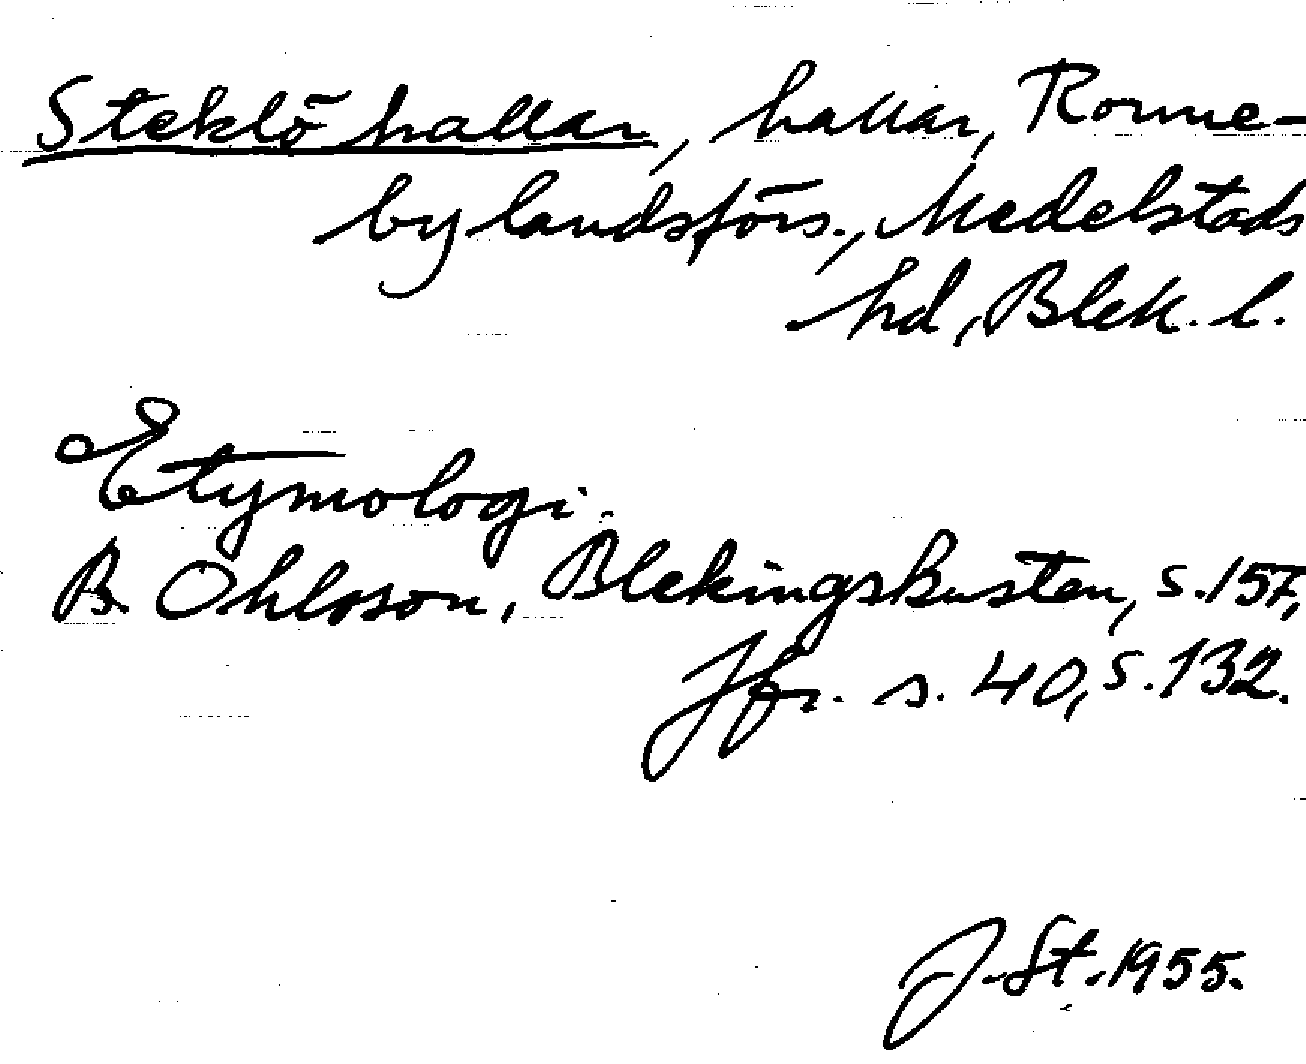 Steklö hallar, hallar, Ronne-
by landsförs., Medelstads
hd, Blek. l.
Etymologi.
B. Ohlsson, Blekingskusten, s. 157,
Jfr. s. 40, s. 132.
J. St. 1955.